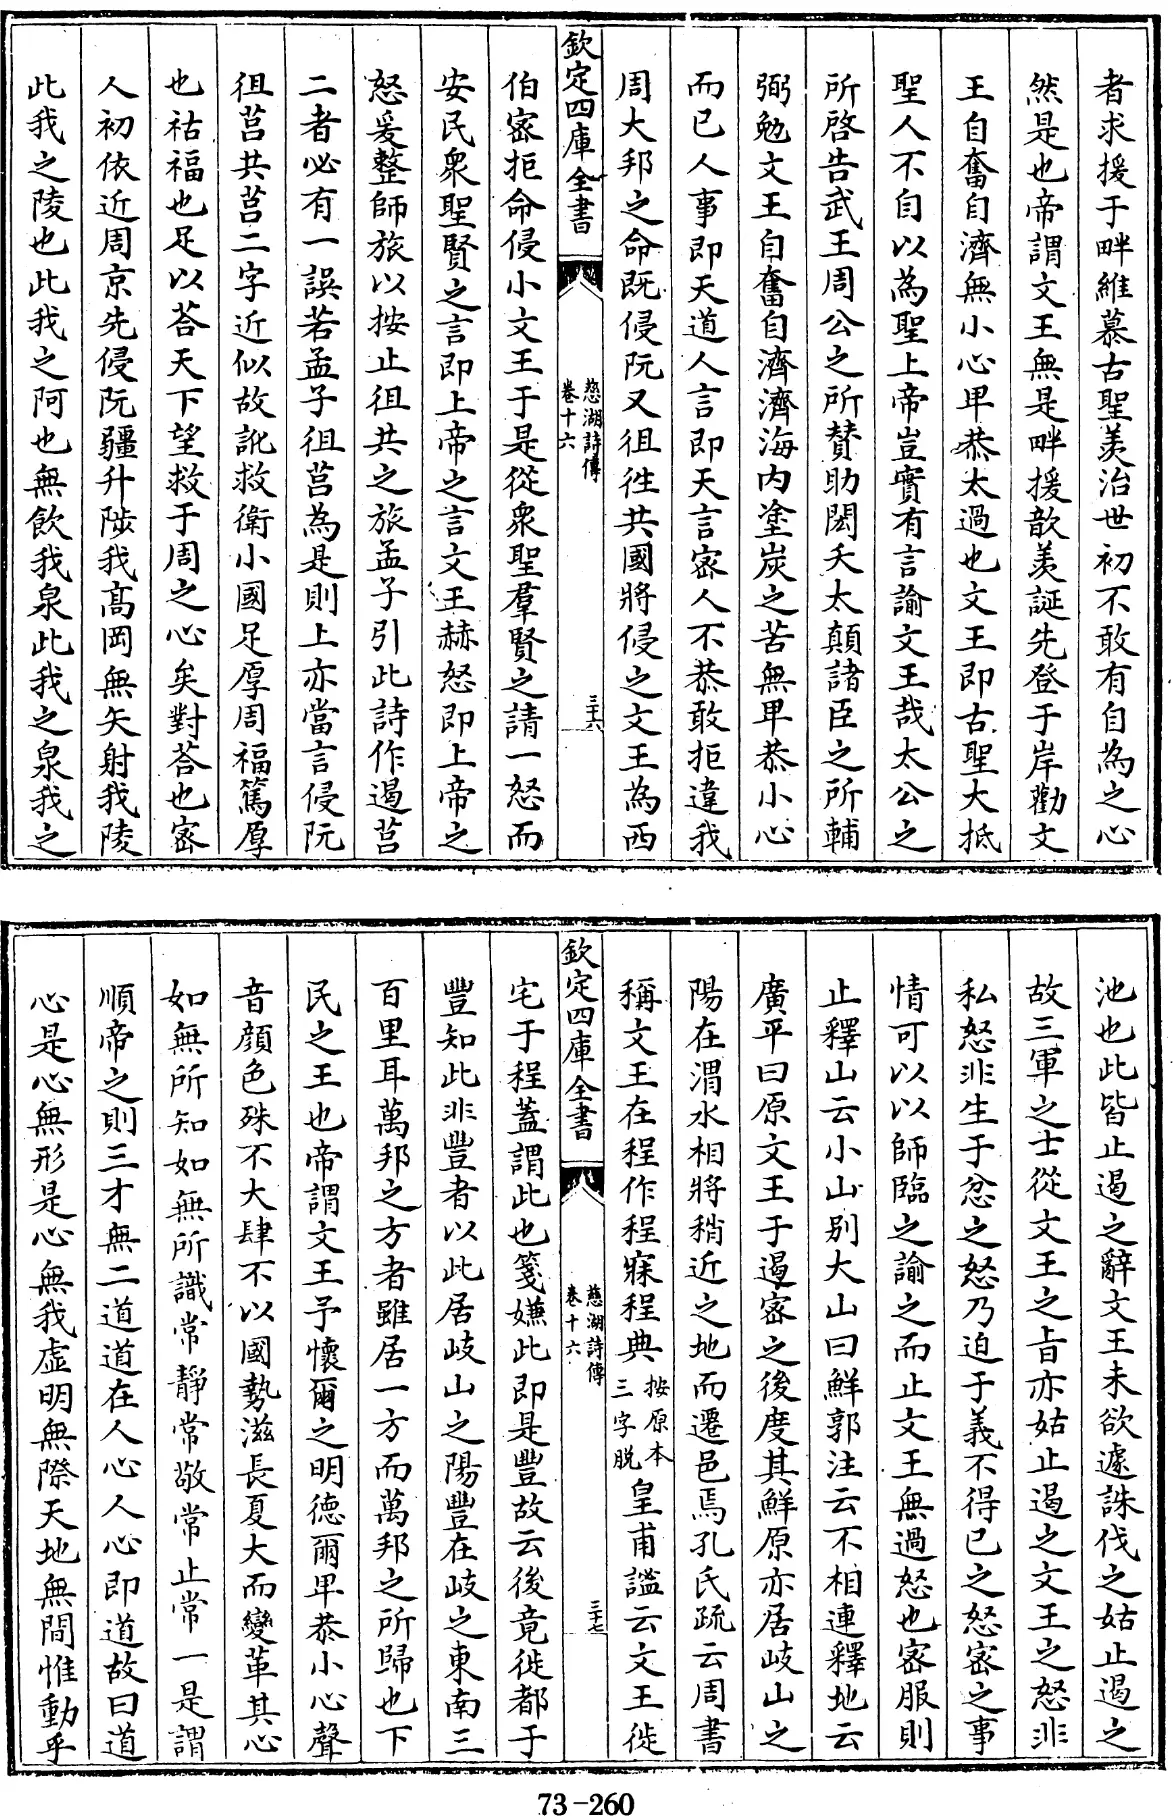 者求援于畔維慕古聖羡治世初不敢有自為之心
然是也帝謂文王無是畔援歆羡誕先登于岸勸文
王自奮自濟無小心卑恭太過也文王即古聖大抵
聖人不自以為聖上帝豈實有言諭文王哉太公之
所啓告武王周公之所賛助閎夭太顛諸臣之所輔
弼勉文王自奮自濟濟海内塗炭之苦無卑恭小心
而已人事即天道人言即天言宻人不恭敢拒違我
周大邦之命既侵阮又徂徃共國將侵之文王為西
欽定四庫全書
慈湖詩傳
卷十六
三十六
伯宻拒命侵小文王于是從衆聖羣賢之請一怒而
安民衆聖賢之言即上帝之言文王赫怒即上帝之
怒爰整師旅以按止徂共之旅孟子引此詩作遏莒
二者必有一誤若孟子徂莒為是則上亦當言侵阮
徂莒共莒二字近似故訛救衛小國足厚周福篤厚
也祜福也足以荅天下望救于周之心矣對荅也宻
人初依近周京先侵阮疆升陟我髙岡無矢射我陵
此我之陵也此我之阿也無飲我泉此我之泉我之
池也此皆止遏之辭文王未欲遽誅伐之姑止遏之
故三軍之士從文王之㫖亦姑止遏之文王之怒非
私怒非生于忿之怒乃迫于義不得已之怒宻之事
情可以以師臨之諭之而止文王無過怒也宻服則
止釋山云小山別大山曰鮮郭注云不相連釋地云
廣平曰原文王于遏宻之後度其鮮原亦居岐山之
陽在渭水相將稍近之地而遷邑焉孔氏疏云周書
稱文王在程作程寤程典按原本三字脱皇甫謐云文王徙
欽定四庫全書
慈湖詩傳
卷十六
三十七
宅于程蓋謂此也箋嫌此即是豐故云後竟徙都于
豐知此非豐者以此居岐山之陽豐在岐之東南三
百里耳萬邦之方者雖居一方而萬邦之所歸也下
民之王也帝謂文王予懷爾之明德爾卑恭小心聲
音顔色殊不大肆不以國勢滋長夏大而變革其心
如無所知如無所識常靜常敬常止常一是謂
順帝之則三才無二道道在人心人心即道故曰道
心是心無形是心無我虚明無際天地無間惟動乎
73-260